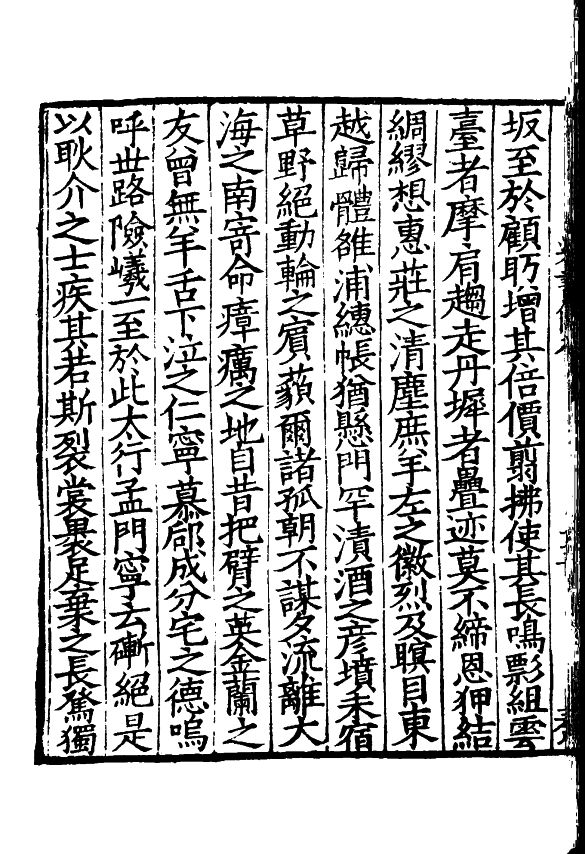 坂至於顧眄增其倍價翦拂使其長鳴影組雲
臺者摩肩趨走丹墀者疊迹莫不締恩狎結
綢繆想惠莊之清塵庶羊左之徽烈及瞑目東
越歸體雒浦繐帳猶懸門罕漬酒之彥墳未宿
草野絕動輪之賓藐爾諸孤朝不謀夕流離大
海之南寄命瘴癘之地自昔把臂之英金蘭之
友曾無羊舌下泣之仁寧慕郈成分宅之德嗚
呼世路險巇一至於此太行孟門寧云嶄絕是
以耿介之士疾其若斯裂裳裹足棄之長騖獨